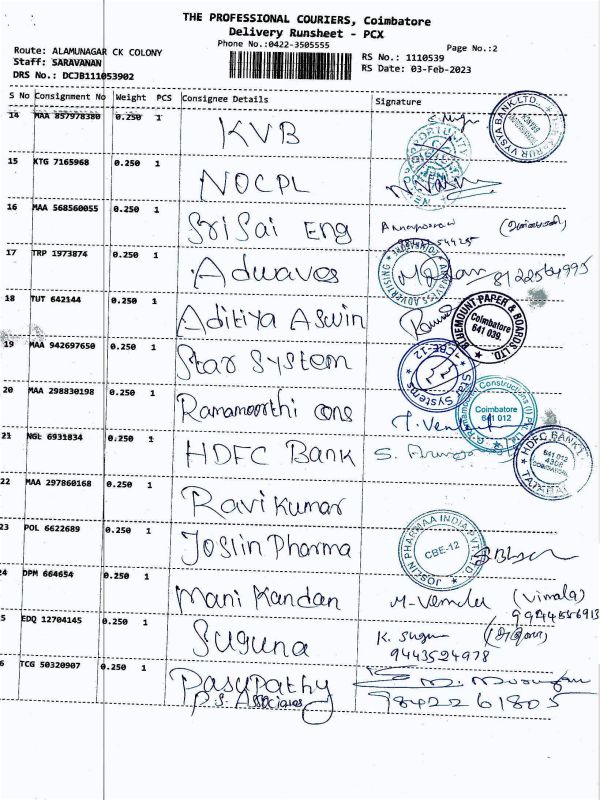 THE PROFESSIONAL COURIERS, Coimbatore
Delivery Runsheet - PCX
Phone No.:0422-3505555
Page No.:2
Route: ALAMUNAGAR CK COLONY
Staff: SARAVANAN
DRS No.: DCJB111053902
RS No.: 1110539
RS Date: 03-Feb-2023
S No Consignment No Weight PCS Consignee Details Signature
14 MAA 857978380 0.250 1 KVB
15 KTG 7165968 0.250 1 NOCPL
16 MAA 568560055 0.250 1 Sri Sai Eng
17 TRP 1973874 0.250 1 Adwaves 8122564995
18 TUT 642144 0.250 1 Aditiya Aswin
BLUEMOUNT PAPER & BOARDS LTD.
Coimbatore
641 039.
19 MAA 942697650 0.250 1 Star System
Star Systems
CBE-12
20 MAA 298830198 0.250 1 Ramamoorthi cons
Coimbatore
641 012
21 NGL 6931834 0.250 1 HDFC Bank
HDFC BANK
641 012
22 MAA 297860168 0.250 1 Ravi Kumar
23 POL 6622689 0.250 1 Joslin Pharma
JOSLIN PHARMAA INDIA PVT. LTD.
CBE-12
24 DPM 664654 0.250 1 Mani Kandan (Vimala)
5 EDQ 12704145 0.250 1 Suguna K. Sugun
9443524978
6 TCG 50320907 0.250 1 Pasupathy
P.S. Associates 9842261805